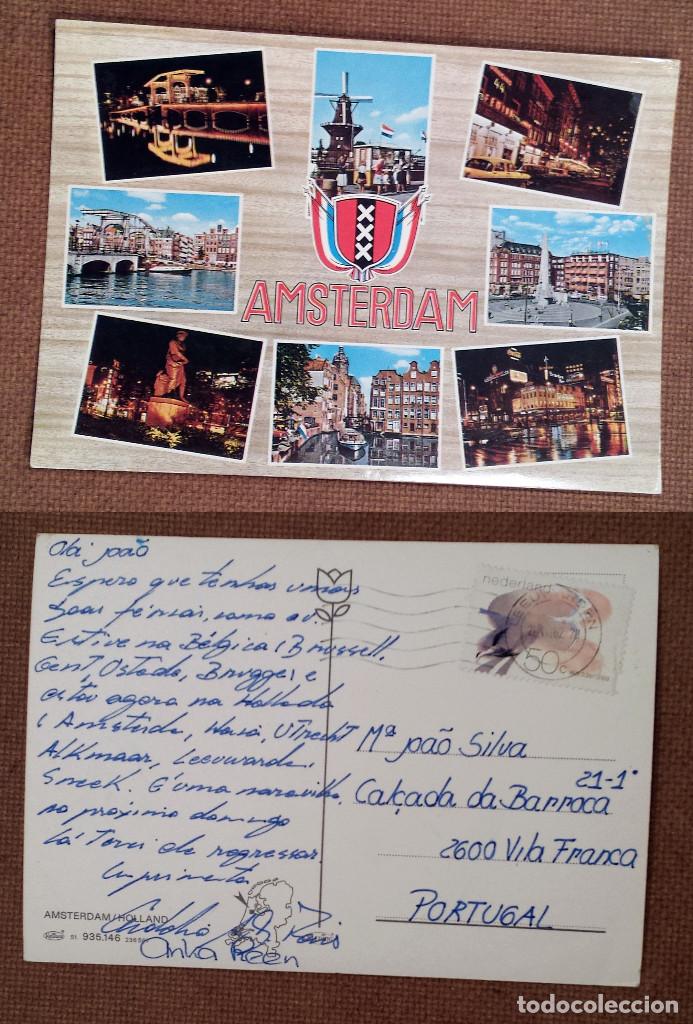 44
XXX
AMSTERDAM
Olá joão
Espero que tenhas umas
boas férias, como eu.
Estive na Bélgica (Brussell,
Gent, Ostade, Brugges e
estou agora na Hollada
(Amsterda, Utrecht
Alkmaar, Leeuwarde,
Sneek. É uma maravilha.
no próximo domingo
lá terei de regressar.
Cumprimentos
Anka
AMSTERDAM/HOLLAND
51 935.146
nederland
50c
Mª joão Silva
21-1º
Calçada da Barroca
2600 Vila Franca
PORTUGAL
todocoleccion